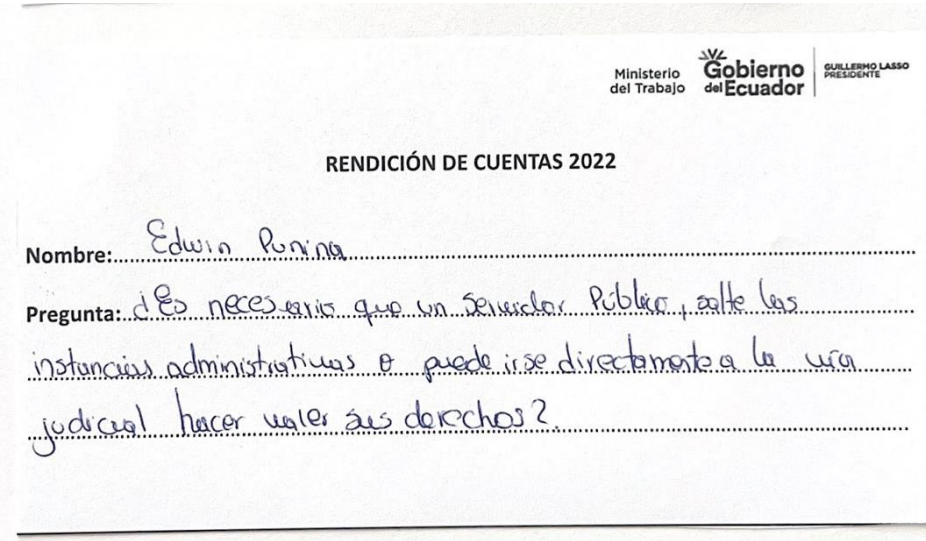 Ministerio
del Trabajo
Gobierno
del Ecuador
GUILLERMO LASSO
PRESIDENTE
RENDICIÓN DE CUENTAS 2022
Nombre: Edwin Punina
Pregunta: ¿Es necesario que un Servidor Público, salte las
instancias administrativas o puede irse directamente a la vía
judicial hacer valer sus derechos?